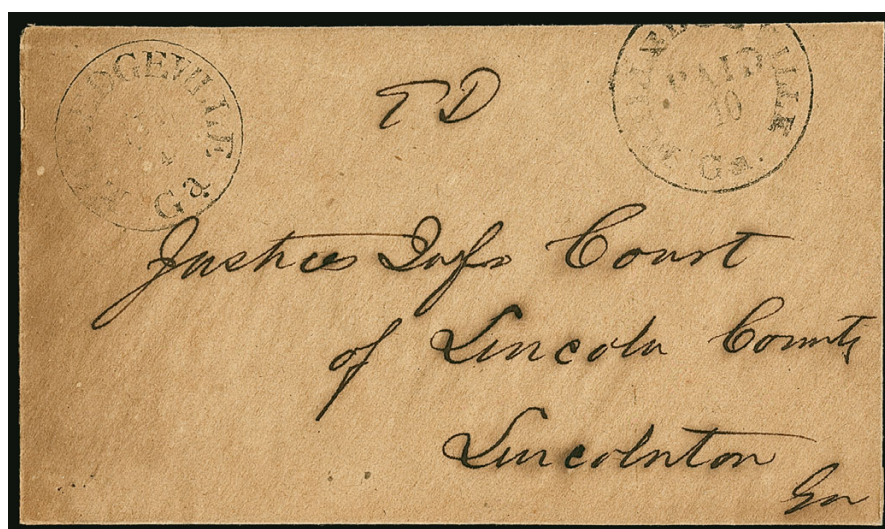 EDGEVILLE
Ga
LLEDGEVILLE
PAID
10
Ga.
Justices Court
of Lincoln County
Lincolnton
Ga